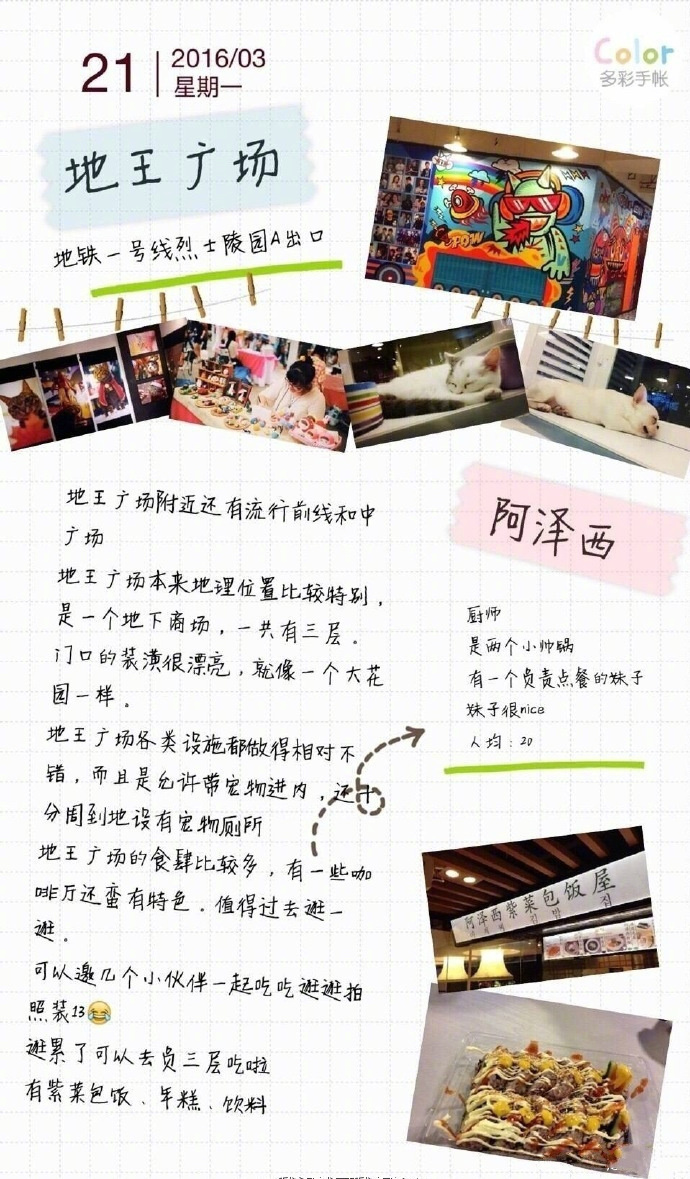 21
2016/03
星期一
Color
多彩手帐
地王广场
地铁一号线烈士陵园A出口
POW
地王广场附近还有流行前线和中
广场
地王广场本来地理位置比较特别，
是一个地下商场，一共有三层。
门口的装潢很漂亮，就像一个大花
园一样。
地王广场各类设施都做得相对不
错，而且是允许带宠物进内，还十
分周到地设有宠物厕所
地王广场的食肆比较多，有一些咖
啡厅还蛮有特色。值得过去逛一
逛。
可以邀几个小伙伴一起吃吃逛逛拍
照装13😂
逛累了可以去负三层吃啦
有紫菜包饭、年糕、饮料
阿泽西
厨师
是两个小帅锅
有一个负责点餐的妹子
妹子很nice
人均：20
阿泽西紫菜包饭屋
아저씨 김밥 집